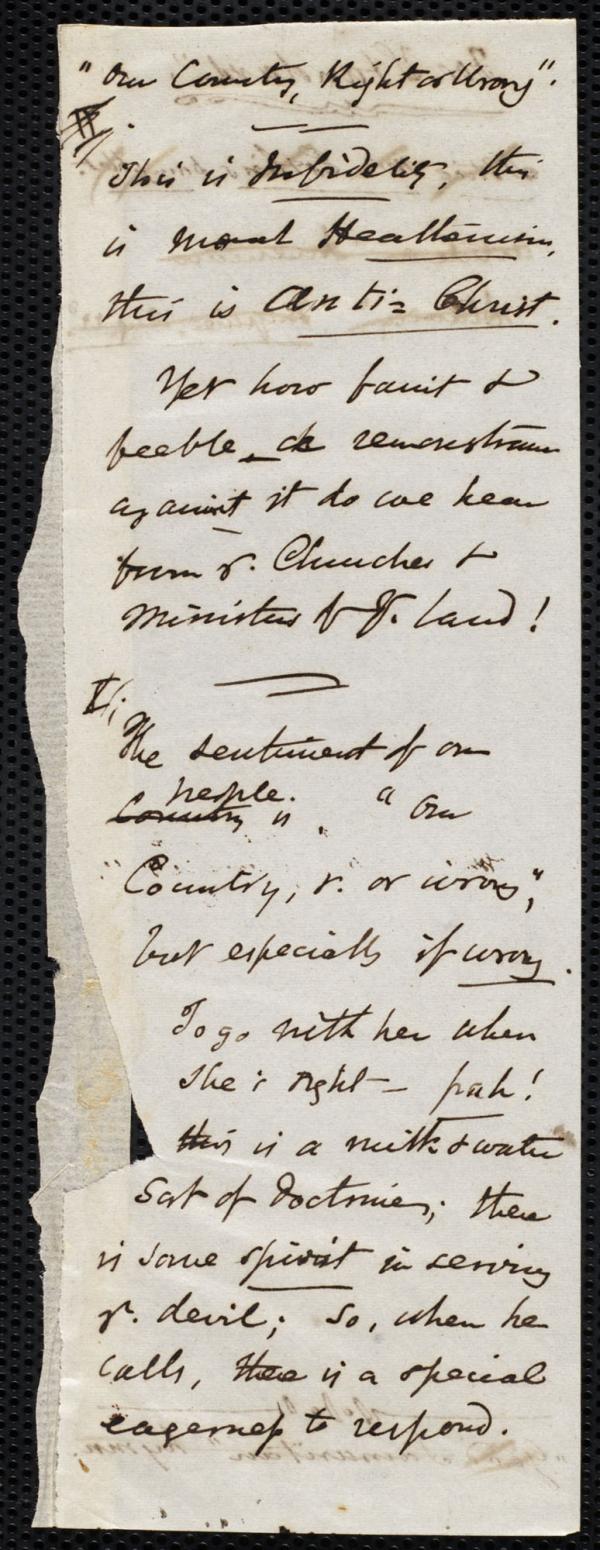 "Our Country, Right or Wrong".
II.
This is Infidelity, this
is moral Heathenism,
this is Anti= Christ.
Yet how faint &
feeble remonstrance
against it do we hear
from ye. Churches &
Ministers of ye. land!
V.
The sentiment of our
people.
Country is "Our
Country, r. or wrong",
but especially if wrong.
To go with her when
she's right — pah!
this is a milk & water
sort of doctrine; there
is some spirit in serving
ye. devil; so, when he
calls, there is a special
eagerness to respond.